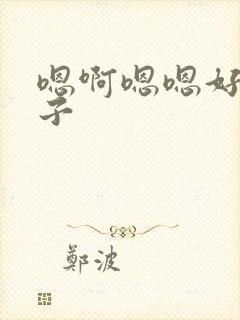 嗯啊嗯嗯好
子
鄭波